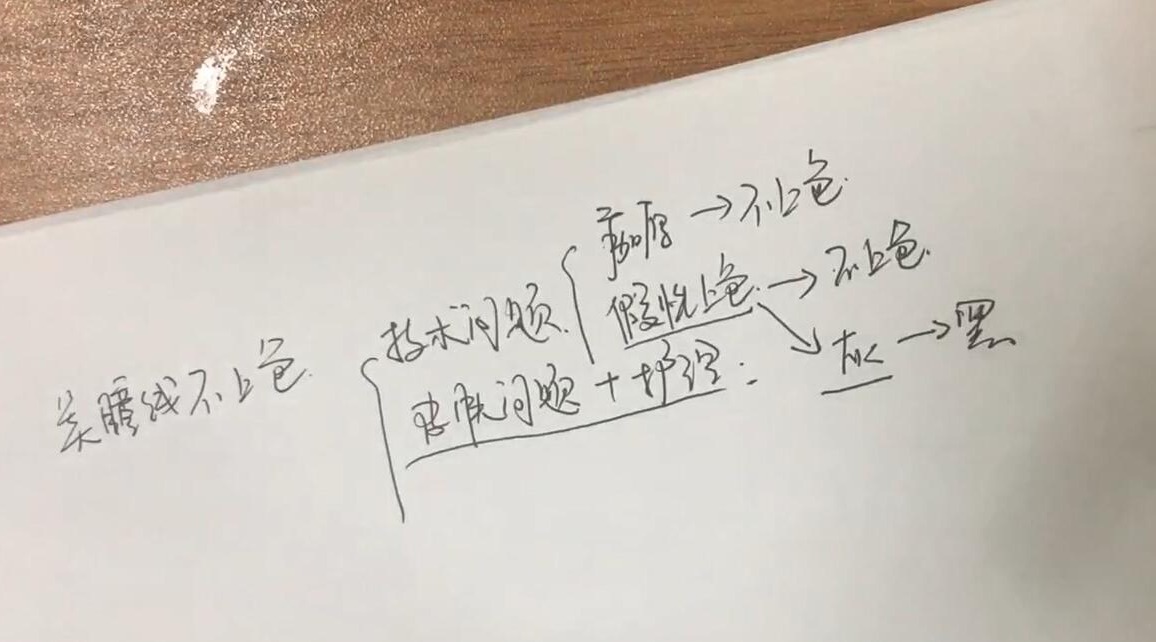 →不上色.
技术问题. 假性上色.→不上色.
美瞳线不上色. 灰→黑
皮肤问题+护理: